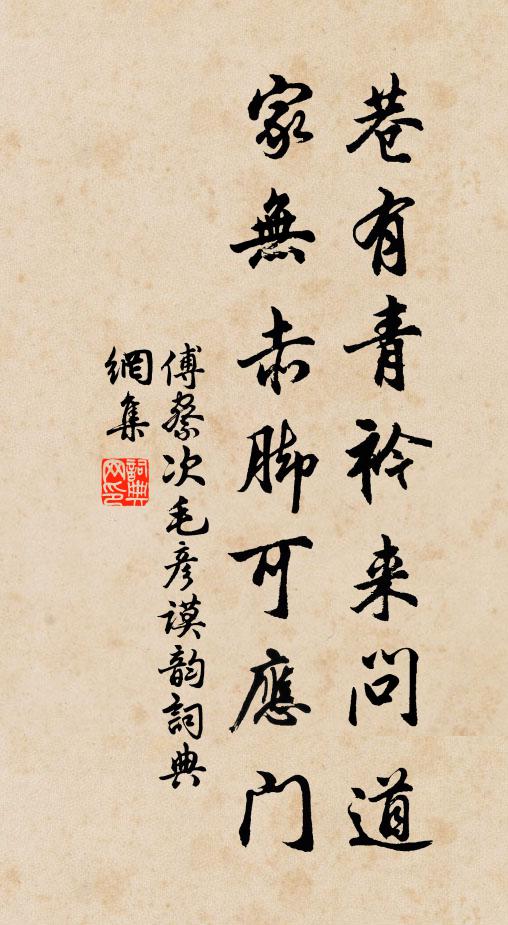 巷有青衿来問道
家無赤脚可應門
傅察次毛彦謨韵詞典
網集
詞典网印